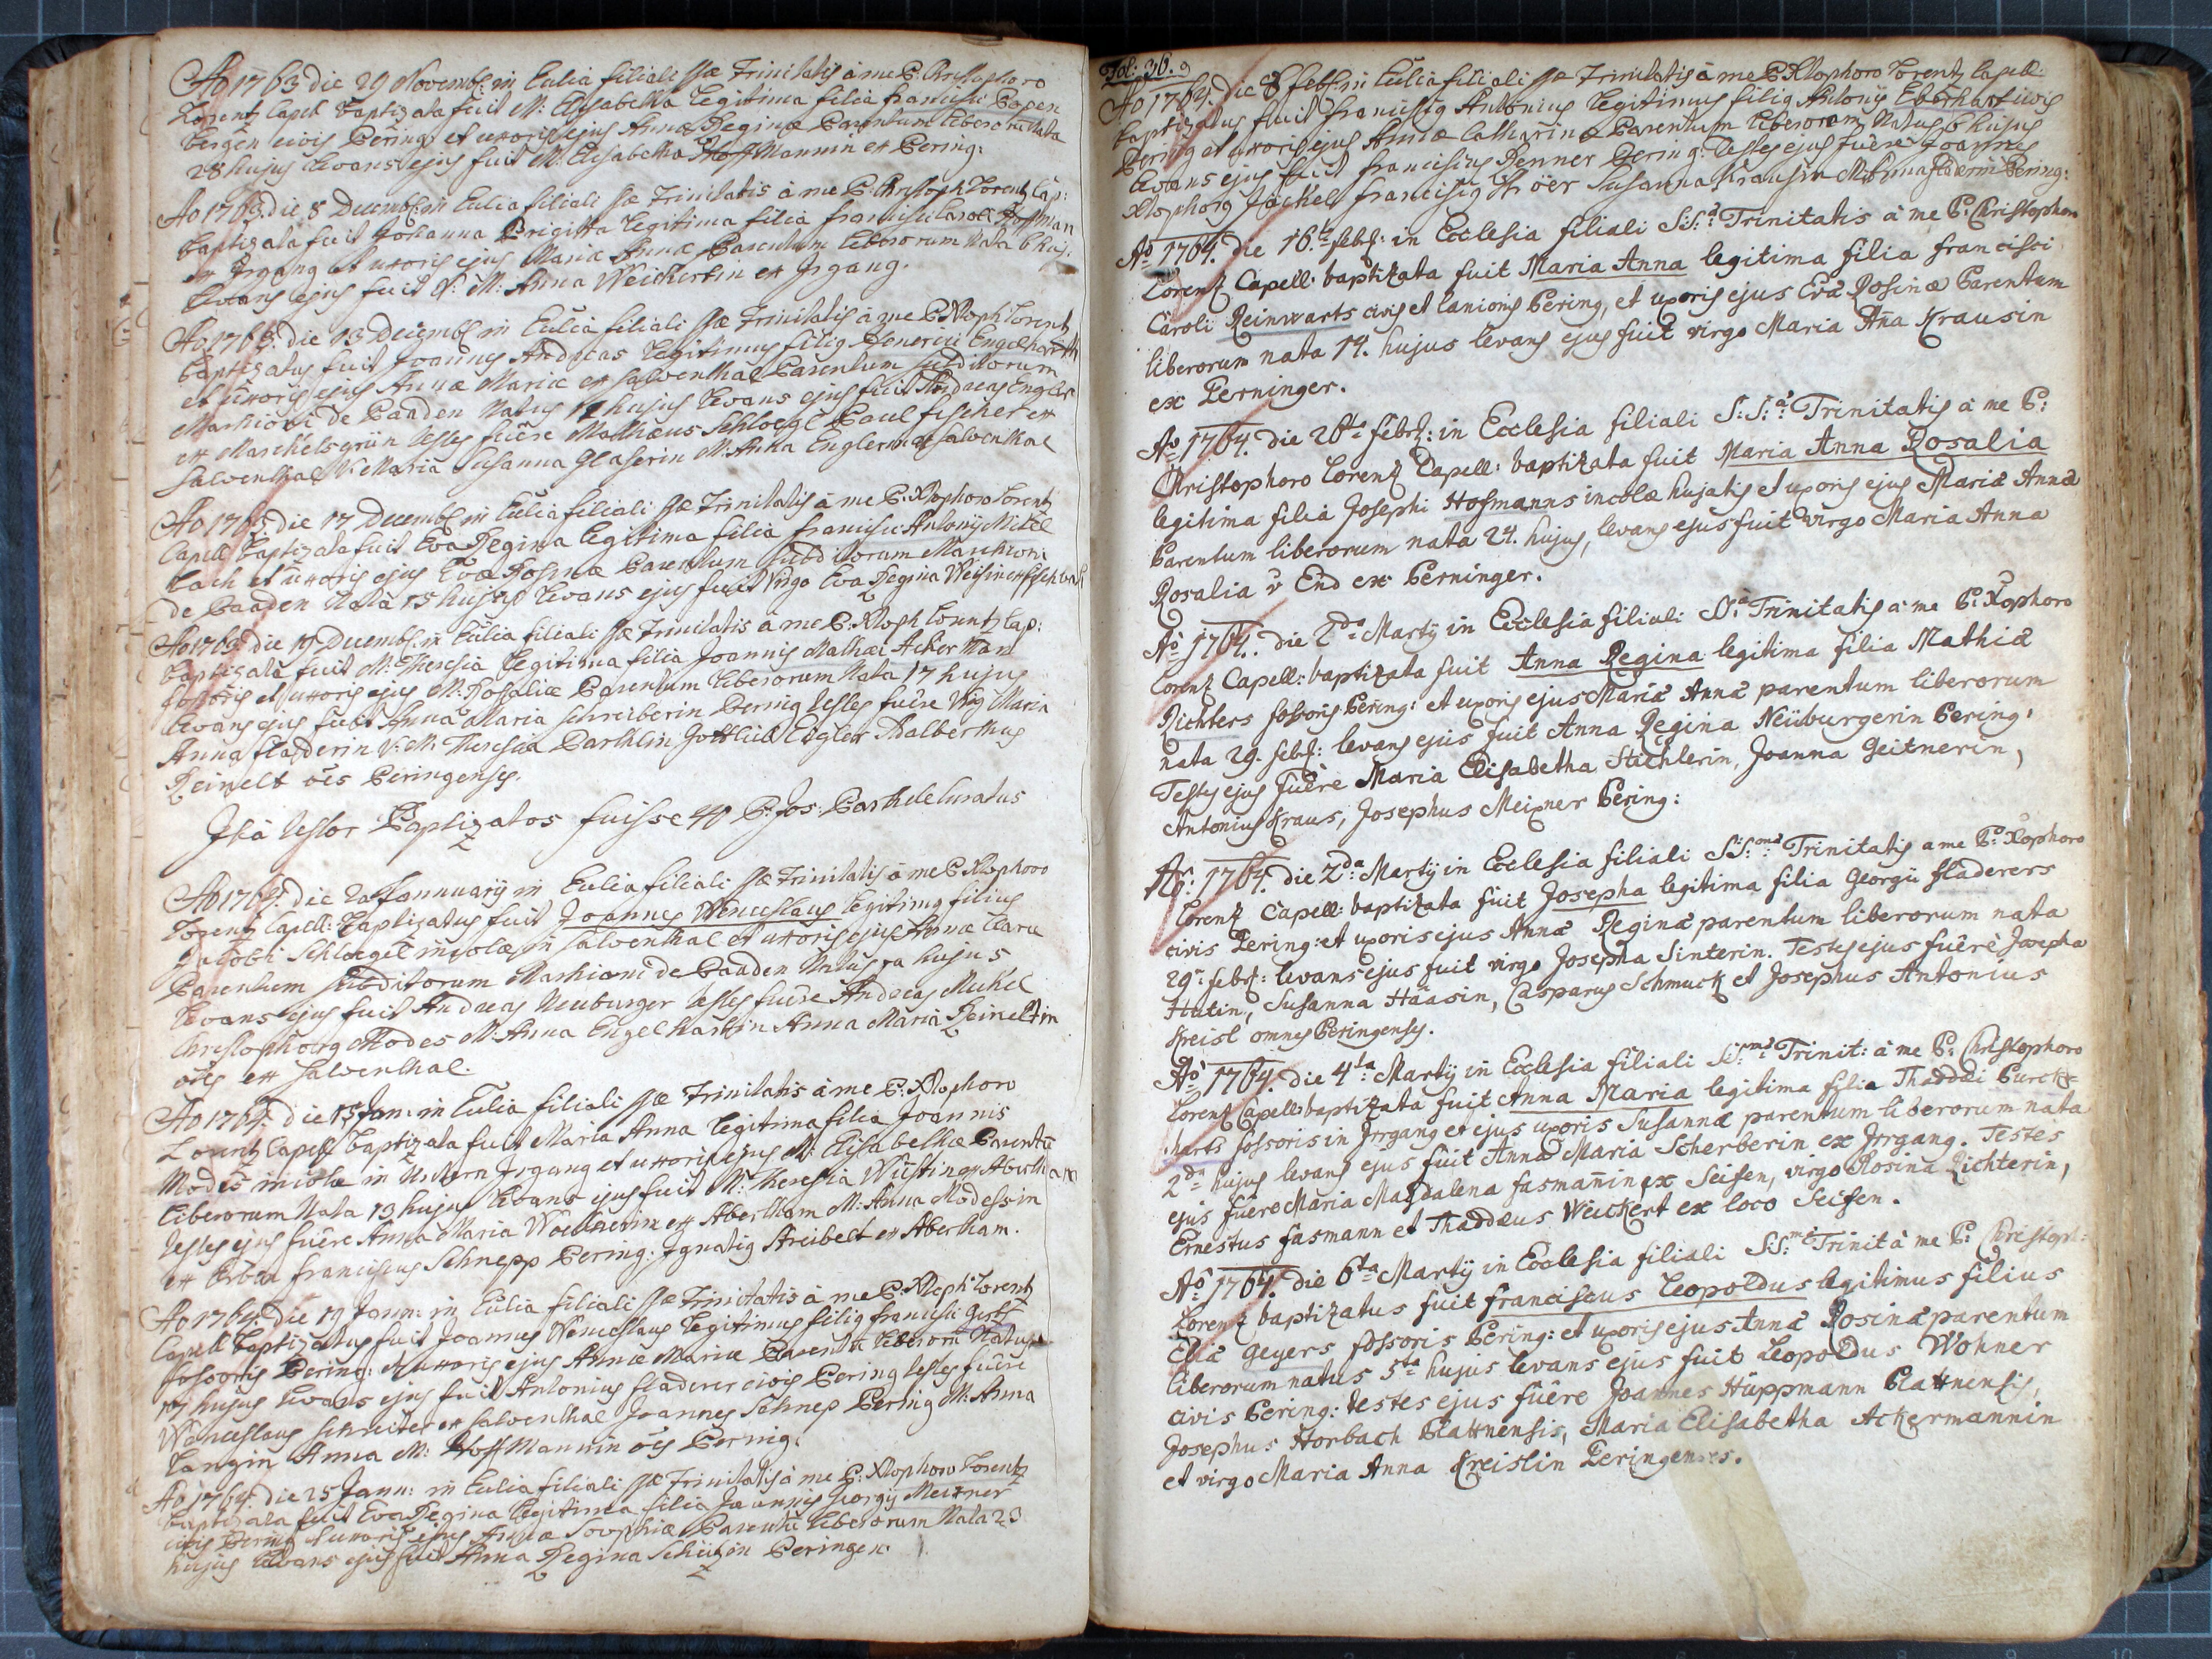 Ao 1763 die 29 Novembr: in Eccliâ filiali SSæ Trinitatis à me P. Christophoro
Lorentz Capell. baptizata fuit M: Elisabetha legitima filia Francisci Popen
bergen civis Pering et uxoris ejus Annæ Reginæ Parentum liberorum Nata
28 hujus Levans ejus fuit M: Elisabetha Hoffmannin ex Pering:
Ao 1763. die 8 Decembr: in Eccliâ filiali SSæ Trinitatis à me P. Christoph Lorentz Cap:
baptizata fuit Johanna Brigitta legitima filia Francisci Caroli
ex Irgang et uxoris ejus Mariæ Annæ Parentum liberorum Nata 6 huj.
Levans ejus fuit V: M: Anna Weickertin ex Irgang.
Ao 1763. die 13 Decembr: in Eccliâ filiali SSæ Trinitatis à me P. Xtoph Lorentz
baptizatus fuit Joannes Andreas legitimus filig Henerici Engelharth
et uxoris ejus Annæ Mariæ ex Salventhal Parentum subditorum
Marhioni de Baaden Natus 12 hujus Levans ejus fuit Andreas Engler
ex Marckelsgrün testes fuêre Mathæus Schloegl Paul Fischer ex
Salventhal V: Maria Susanna Glaserin M: Anna Englerin ex Salventhal
Ao 1763 die 17 Decembr: in Eccliâ filiali SSæ Trinitatis à me P. Xtophoro Lorentz
Capell baptizata fuit Eva Regina legitima filia Francisci Antonij Mittl
bach et uxoris ejus Evæ Rosinæ Parentum subditorum Marchioni
de Baaden Nata 15 hujus Levans ejus fuit Virgo Eva Regina Weisin
Ao 1763. die 19 Decembr: in Eccliâ filiali SSæ Trinitatis à me P. Xtoph Lorentz Cap:
baptizata fuit M: Theresia legitima filia Joannis Mathæi Acker Man
fossoris et uxoris ejus M: Rosaliæ Parentum liberorum Nata 17 hujus
Levans ejus fuit Anna Maria Schreiberin Pering testes fuêre Virg Maria
Anna Fladerin V: M: Theresia Barthlin Gottlieb Eigler Adalberthus
Reinelt oes Peringenses.
Ita testor Baptizatos fuisse 40 P. Jos: Barth Curatus
Ao 1764. die 20 Jannuarij in Eccliâ filiali SSæ Trinitatis à me P. Xtophoro
Lorentz Capell: baptizatus fuit Joannes Wenceslaus legitimg filius
Jacobi Schloegel incolæ in Salventhal et uxoris ejus Annæ Claræ
Parentum subditorum Marhioni de Baaden Natus hujus
Levans ejus fuit Andreas Neuburger testes fuêre Andreas Michel
Christophorg Modes M: Anna Engelhartin Anna Maria Reineltin
oes ex Salventhal.
Ao 1764. die 15 Jan: in Eccliâ filiali SSæ Trinitatis à me P. Xtophoro
Lorentz Capell baptizata fuit Maria Anna legitima filia Joannis
Modes incolæ in Irgang et uxoris ejus M: Elisabethæ Parentū
liberorum Nata 13 hujus Levans ejus fuit M: Theresia Wüstin ex Abertham
testes ejus fuêre Anna Maria ex Abertham M: Anna Modessin
ex Franciscus Schnepp Pering: Ignatig Streibelt ex Abertham.
Ao 1764. die 19 Jann: in Eccliâ filiali SSæ Trinitatis à me P. Xtoph Lorentz
Capell baptizatus fuit Joannes Wenceslaus legitimus filig Francisci
fossoris Pering: et uxoris ejus Annæ Mariæ Parentū liberorū Natus
17 hujus Levans ejus fuit Antonius Fladerer civis Pering testes fuêre
Wenceslaus Schreiter ex Salventhal Joannes Schnep Pering M: Anna
Langin Anna M: Hoff Mannin oes Pering:
Ao 1764. die 25 Jann: in Eccliâ filiali SSæ Trinitatis à me P. Xtophoro Lorentz
baptizata fuit Eva Regina legitima filia Joannis Georgij Meixner
civis Pering et uxoris ejus Annæ Sophiæ Parentū liberorum Nata 23
hujus Levans ejus fuit Anna Regina Schützin Peringen:
Fol: 36.
Ao 1764. die 8 Febr: in Eccliâ filiali SSæ Trinitatis à me P. Xtophoro Lorentz Capell:
baptizatus fuit Franciscg Antonius legitimus filig Antonij Eberhart civis
Pering et uxoris ejus Annæ Catharinæ Parentum liberorum Natus 6 hujus
Levans ejus fuit Franciscus Renner Pering: testes ejus fuêre Joannes
Xtophorg Jäckel Franciscg Susanna Krausin M: Anna Fladerin Pering:
Aõ 1764. die 16.ta febr: in Ecclesia filiali S:S:æ Trinitatis à me P: Christophoro
Lorentz Capell: baptizata fuit Maria Anna legitima filia Francisci
Caroli Reinwarts civis et lanionis Pering, et uxoris ejus Evæ Rosinæ Parentum
liberorum nata 14. hujus levans ejus fuit virgo Maria Ana Krausin
ex Perninger.
Aõ 1764. die 26ta febr: in Ecclesia filiali S:S:æ Trinitatis à me P:
Christophoro Lorentz Capell: baptizata fuit Maria Anna Rosalia
legitima filia Josephi Hofmanns incolæ hujatis et uxoris ejus Mariæ Annæ
Parentum liberorum nata 24. hujus, levans ejus fuit virgo Maria Anna
Rosalia v End ex Perninger.
Aõ 1764. die 2da Martij in Ecclesia filiali SS:æ Trinitatis à me P: Xtophoro
Lorentz Capell: baptizata fuit Anna Regina legitima filia Mathiæ
Richters fossoris Pering: et uxoris ejus Mariæ Annæ parentum liberorum
nata 29. febr: levans ejus fuit Anna Regina Neüburgerin Pering:
Testes ejus fuêre Maria Elisabetha Stichlerin, Joanna Geitnerin,
Antonius Kraus, Josephus Meixner Pering:
Aõ: 1764. die 2da Martij in Ecclesia filiali S:S:mæ Trinitatis a me P: Xtophoro
Lorentz Capell: baptizata fuit Josepha legitima filia Georgii Fladerers
civis Pering: et uxoris ejus Annæ Reginæ parentum liberorum nata
29: febr: levans ejus fuit virgo Josepha Sinterin. Testes ejus fuêre Josepha
Hutin, Susanna Häasin, Casparus Schmuck et Josephus Antonius
Kreisl omnes Peringenses.
Aõ 1764. die 4ta Martij in Ecclesia filiali S:S:mæ Trinit: à me P: Christophoro
Lorentz Capell: baptizata fuit Anna Maria legitima filia Thaddæi Burck-
harts fossoris in Irrgang et ejus uxoris Susannæ parentum liberorum nata
2da hujus levans ejus fuit Anna Maria Scherberin ex Irrgang. Testes
ejus fuêre Maria Magdalena Fasmañin ex Seifen, virgo Rosina Richterin,
Ernestus Fasmann et Thaddæus Weickert ex loco Seifen.
Aõ 1764. die 6ta Martij in Ecclesia filiali S:S:mæ Trinit à me P: Christoph:
Lorentz baptizatus fuit Franciscus Leopoldus legitimus filius
Eliæ Geyers fossoris Pering: et uxoris ejus Annæ Rosinæ parentum
liberorum natus 5ta hujus levans ejus fuit Leopoldus Wohner
civis Pering: testes ejus fuêre Joannes Hüppmann Plattnensis,
Josephus Horbach Plattnensis, Maria Elisabetha Ackermannin
et virgo Maria Anna Kreislin Peringenses.